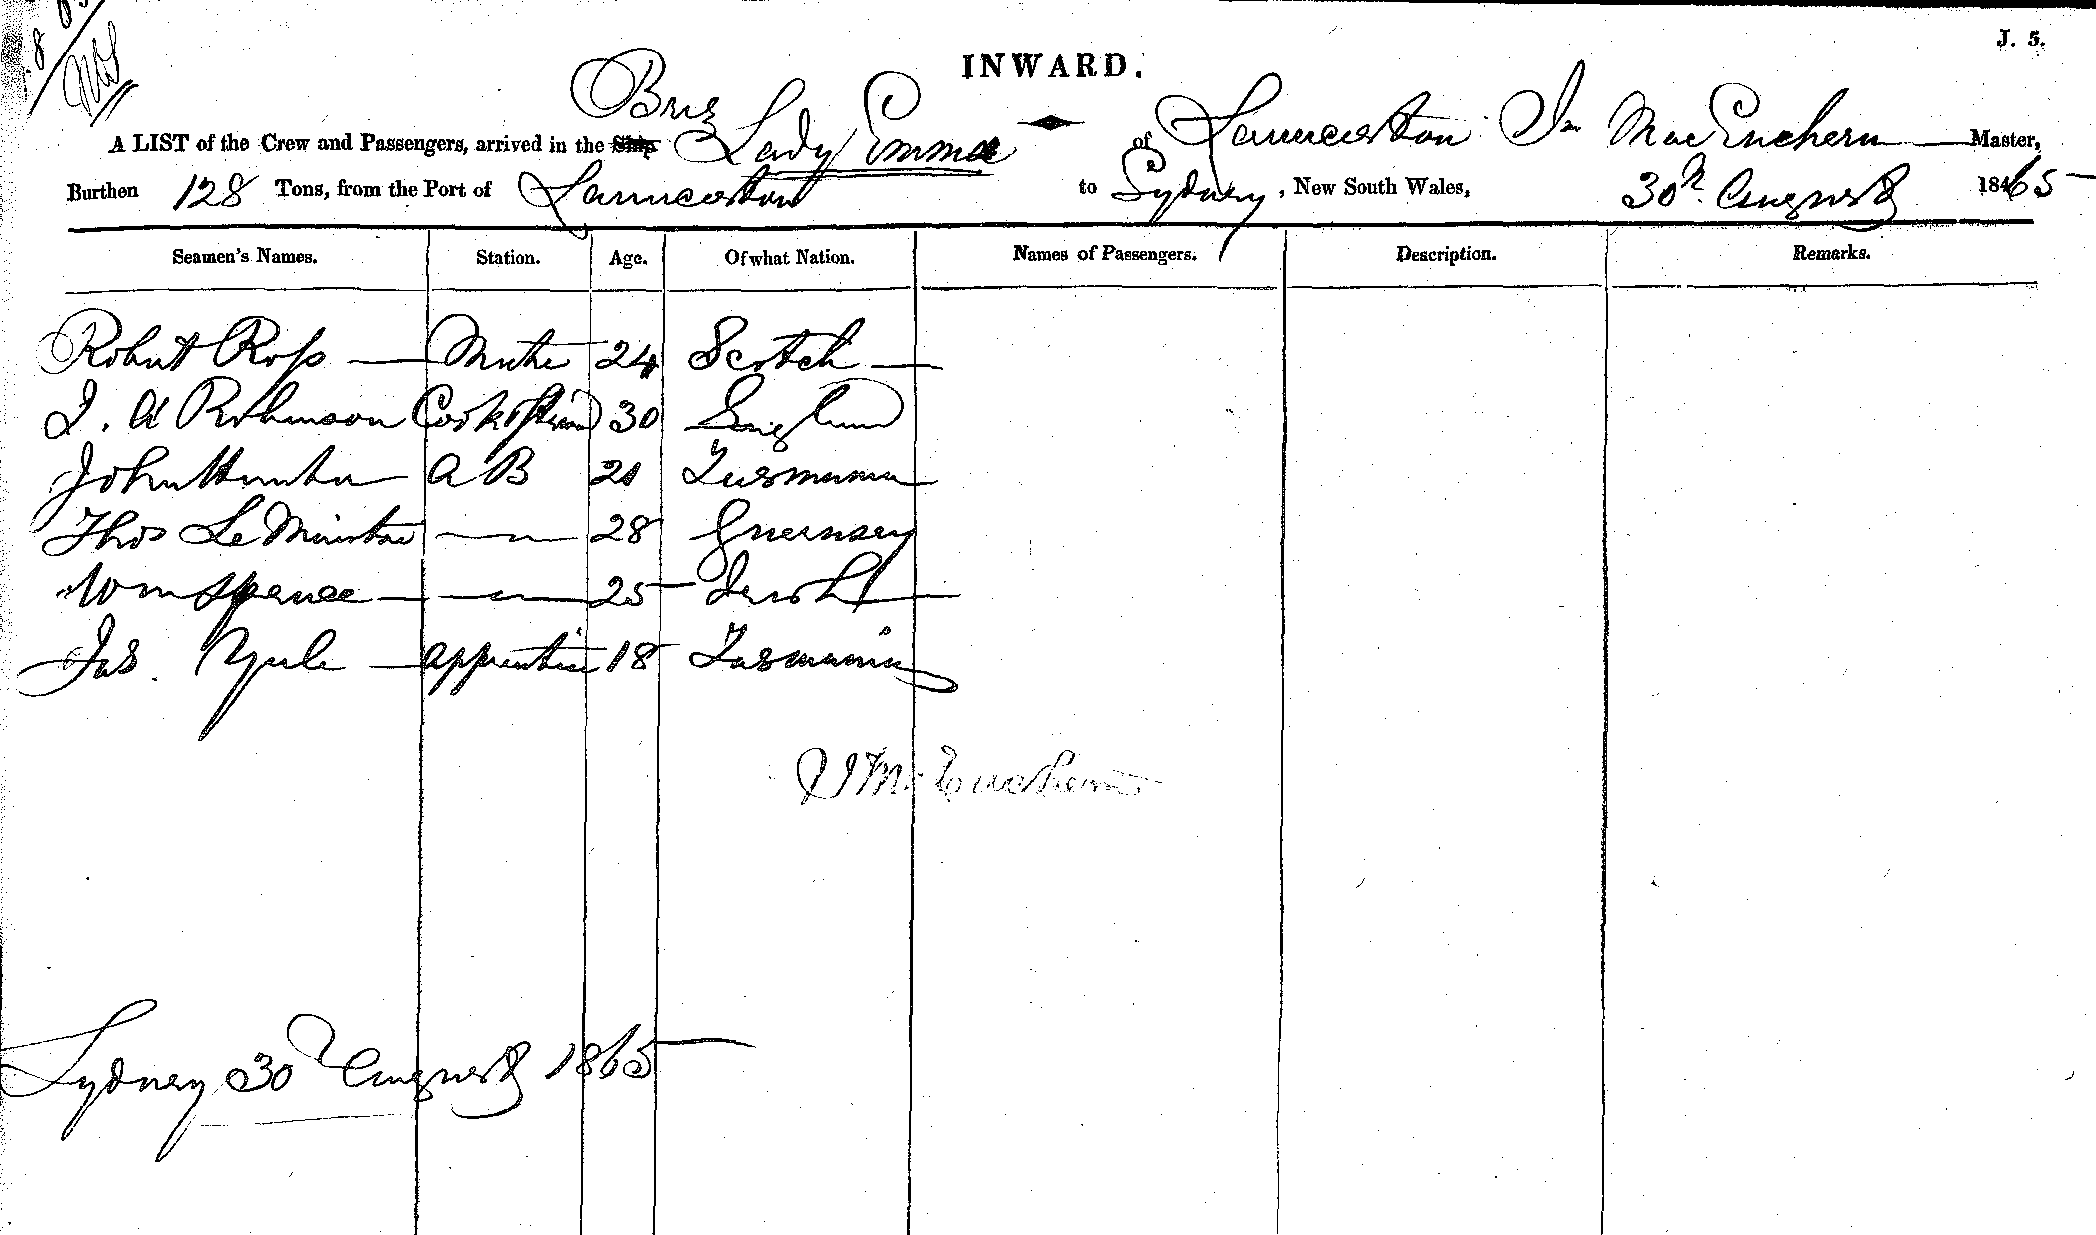 J. 5.
INWARD.
Brig
A LIST of the Crew and Passengers, arrived in the Ship Lady Emma of Launceston Jn MacEachern Master,
Burthen 128 Tons, from the Port of Launceston to Sydney, New South Wales, 30th August 1865
Seamen's Names. Station. Age. Of what Nation. Names of Passengers. Description. Remarks.
Robert Ross Mate 24 Scotch
J. A Robinson Cook & Steward 30 England
John Hunter A B 21 Tasmania
Thos Le Minston 28 Guernsey
Wm Spence 25 Irish
Jas. Yule apprentice 18 Tasmania
J McEachern
Sydney 30th August 1865